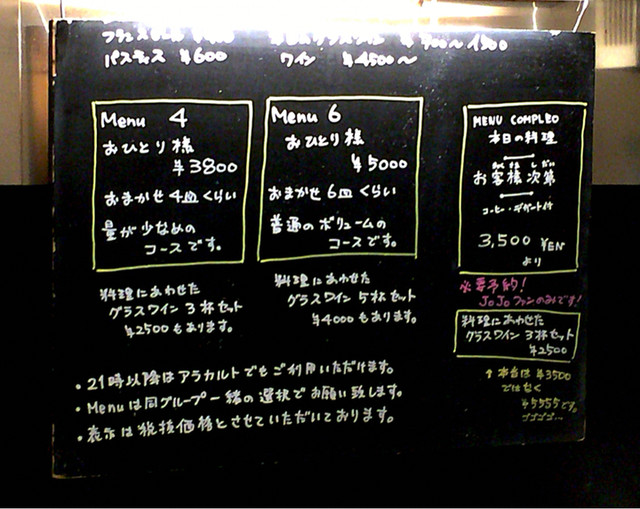 ¥600
パスティス ¥600
ワイン ¥4500〜
Menu 4
おひとり様
¥3800
おまかせ 4皿 くらい
量が少なめの
コースです。
料理にあわせた
グラスワイン 3杯セット
¥2500もあります。
Menu 6
おひとり様
¥5000
おまかせ 6皿 くらい
普通のボリュームの
コースです。
料理にあわせた
グラスワイン 5杯セット
¥4000もあります。
MENU COMPLEO
本日の料理
お客様次第
コーヒー・デザート付
3,500 YEN
より
必要予約!
JoJoファンのみです!
料理にあわせた
グラスワイン 3杯セット
¥2500
↑本当は ¥3500
ではなく
¥5555です。
ゴゴゴゴ…
・21時以降はアラカルトでもご利用いただけます。
・Menuは同グループ一緒の選択でお願い致します。
・表示は税抜価格とさせていただいております。